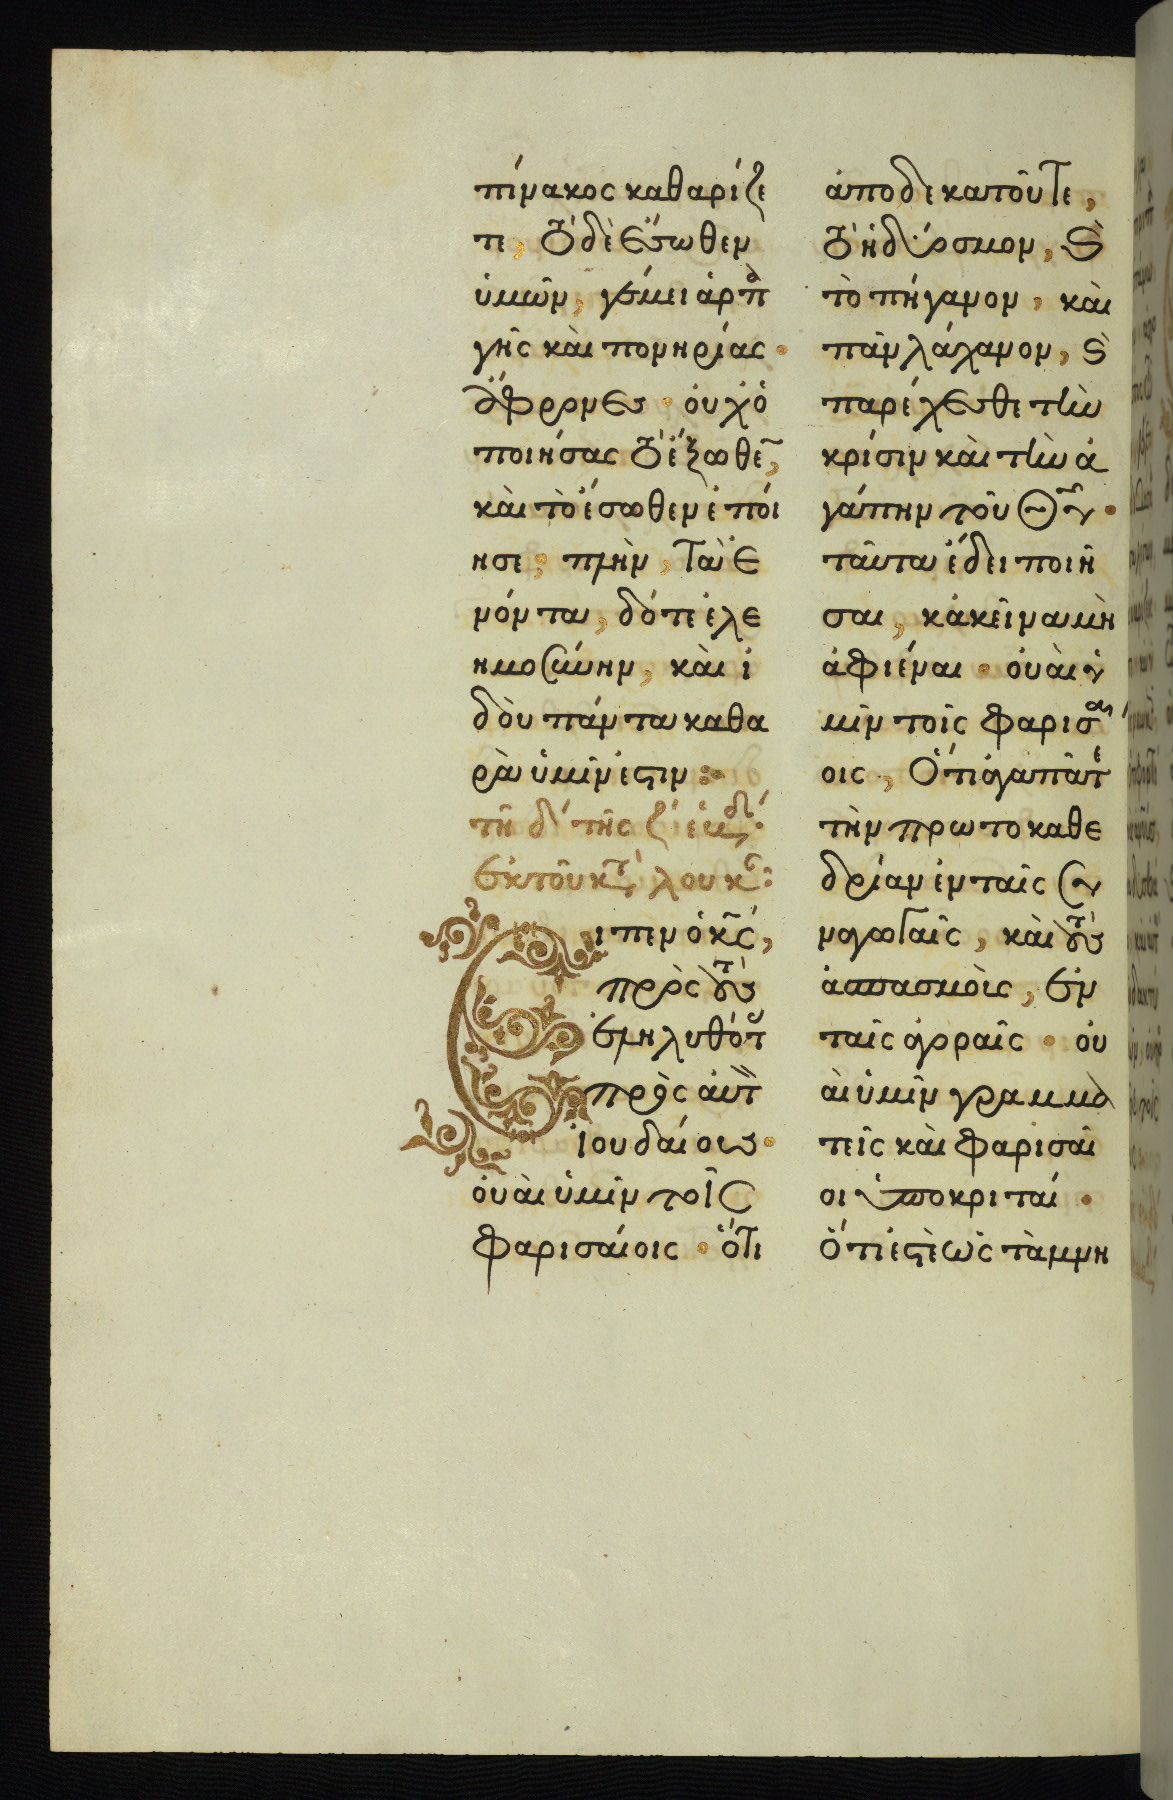 πίνακος καθαρίζε
τε, τὸ δὲ ἔσωθεν
ὑμῶν, γέμει ἁρπα
γῆς καὶ πονηρίας·
ἄφρονες· οὐχ ὁ
ποιήσας τὸ ἔξωθεν,
καὶ τὸ ἔσωθεν ἐποί
ησε; πλὴν, τὰ ἐ
νόντα, δότε ἐλε
ημοσύνην, καὶ ἰ
δοὺ πάντα καθα
ρὰ ὑμῖν ἐστιν:
τῇ δ΄ τῆς ζ΄ ἑβδ΄·
ἐκ τοῦ κτ λουκ:
Εἶπεν ὁ κ̅ς̅,
πρὸς τοὺς
ἐληλυθότας
πρὸς αὐτὸν
ἰουδαίους·
οὐαὶ ὑμῖν τοῖς
φαρισαίοις· ὅτι
ἀποδεκατοῦτε,
τὸ ἡδύοσμον, καὶ
τὸ πήγανον, καὶ
πᾶν λάχανον, καὶ
παρέχεσθε τὴν
κρίσιν καὶ τὴν ἀ
γάπην τοῦ Θ̅υ̅·
ταῦτα ἔδει ποιῆ
σαι, κἀκεῖνα μὴ
ἀφιέναι· οὐαὶ ὑ
μῖν τοῖς φαρισαί
οις, ὅτι ἀγαπᾶτε
τὴν πρωτοκαθε
δρίαν ἐν ταῖς συ
ναγωγαῖς, καὶ τοὺς
ἀσπασμοὺς, ἐν
ταῖς ἀγοραῖς· οὐ
αὶ ὑμῖν γραμμα
τεῖς καὶ φαρισαῖ
οι ὑποκριταί·
ὅτι ἐστὲ ὡς τὰ μνη